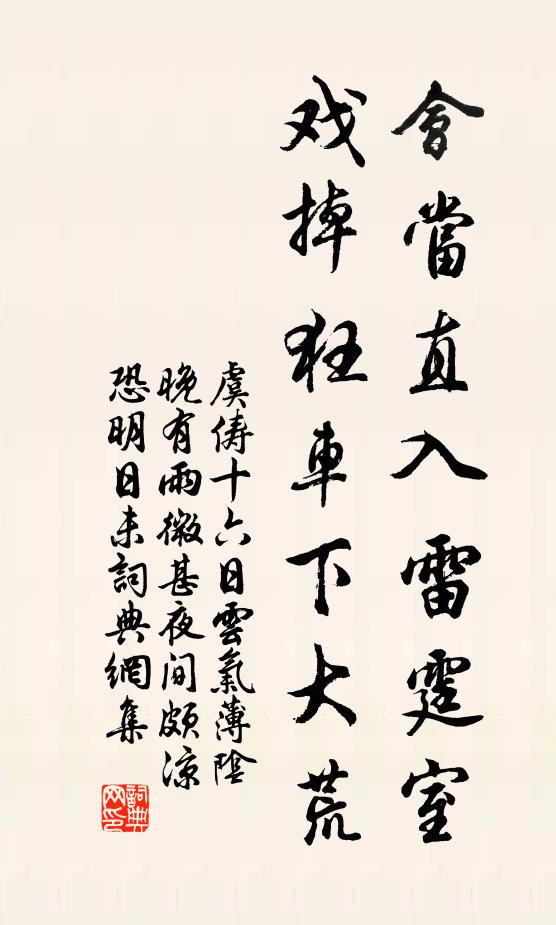 會當直入雷霆室
戏掉狂車下大荒
虞儔十六日雲氣薄陰
晚有雨微甚夜间頗涼
恐明日未詞典網集
詞典网印